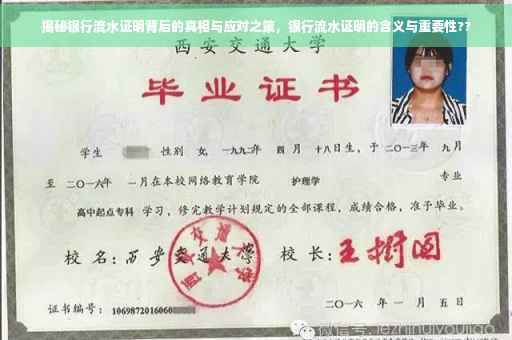 揭秘银行流水证明背后的真相与应对之策，银行流水证明的含义与重要性??
西安交通大学
毕业证书
学生 性别 女，一九九二年 四月 十八日生，于二〇一三年 九月
至 二〇一六年 一月在本校网络教育学院 护理学 专业
高中起点专科 学习，修完教学计划规定的全部课程，成绩合格，准予毕业。
校名：西安交通大学 校长：王树国
西安交通大学
证书编号：1069872016060
二〇一六 年 一 月 五 日
微信号: jiezhinuyoujiao